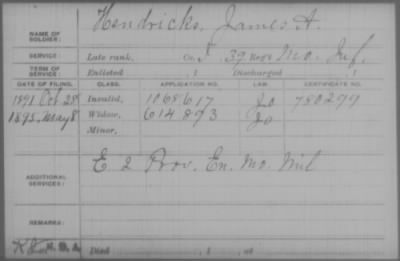 NAME OF SOLDIER: Hendricks, James A.
SERVICE: Late rank, Co. I, 39 Reg't Mo. Inf.
TERM OF SERVICE: Enlisted , 1 Discharged , 1
DATE OF FILING. CLASS. APPLICATION NO. LAW. CERTIFICATE NO.
1891 Oct 28 Invalid, 1068617 Jo 780299
1895 May 8 Widow, 614893 Jo
Minor,
ADDITIONAL SERVICES: E 2 Prov. En. Mo. Mil
REMARKS:
Died , 1 , at